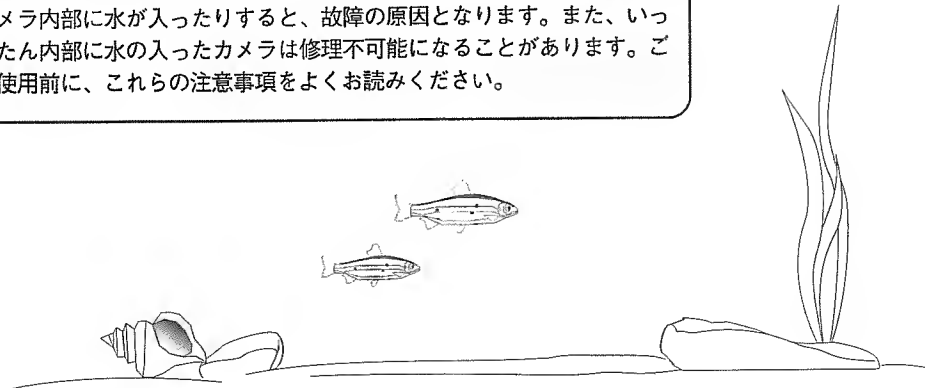 メラ内部に水が入ったりすると、故障の原因となります。また、いっ
たん内部に水の入ったカメラは修理不可能になることがあります。ご
使用前に、これらの注意事項をよくお読みください。